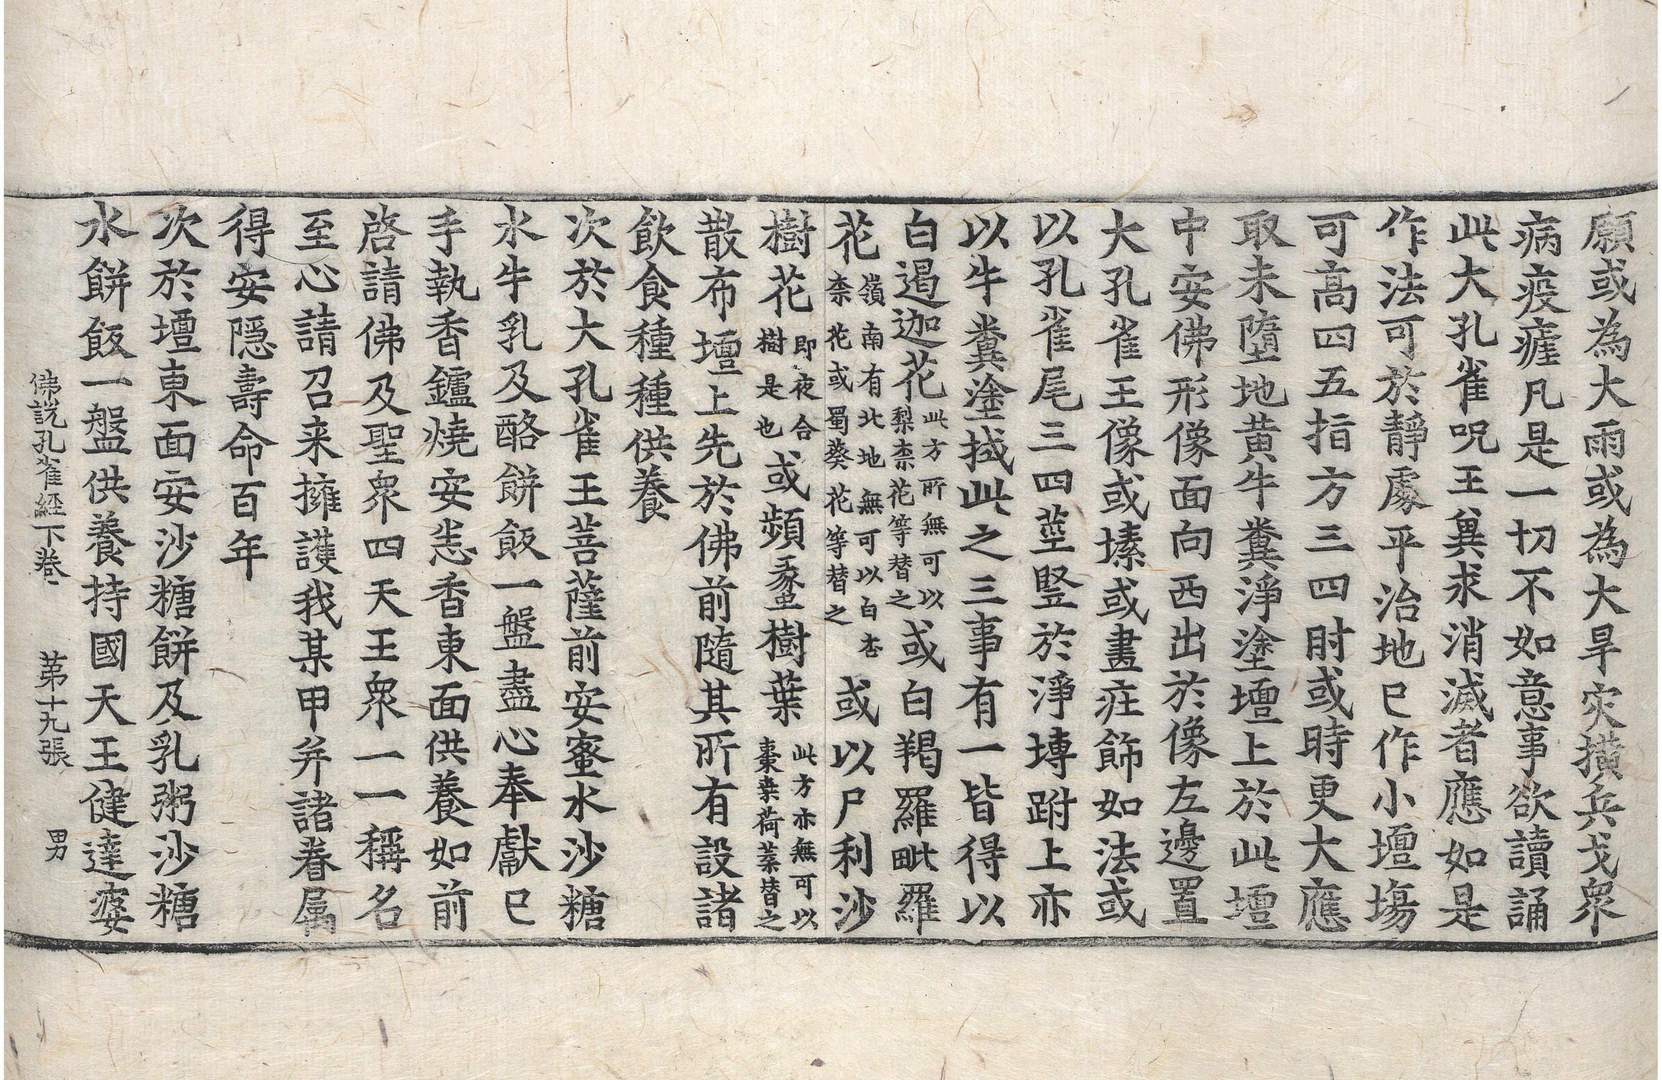 願或為大雨或為大旱灾撗兵戈衆
病疫瘧凡是一切不如意事欲讀誦
此大孔雀呪王兾求消滅者應如是
作法可於靜處平治地已作小壇場
可高四五指方三四肘或時更大應
取未墮地黄牛糞淨塗壇上於此壇
中安佛形像面向西出於像左邊置
大孔雀王像或塐或畫疘飾如法或
以孔雀尾三四莖豎於淨塼跗上亦
以牛糞塗拭此之三事有一皆得以
白遏迦花此方所無可以梨柰花等替之或白羯羅毗羅
花嶺南有北地無可以白杏柰花或蜀葵花等替之或以尸利沙
樹花即夜合樹是也或頻蠡樹葉此方亦無可以棗桒荷葉替之
散布壇上先於佛前隨其所有設諸
飲食種種供養
次於大孔雀王菩薩前安蜜水沙糖
水牛乳及酪餅飯一盤盡心奉獻已
手執香鑪燒安悉香東面供養如前
啓請佛及聖衆四天王衆一一稱名
至心請召来擁護我某甲并諸眷属
得安隱壽命百年
次於壇東面安沙糖餅及乳粥沙糖
水餅飯一盤供養持國天王健達婆
佛說孔雀經下卷 第十九張 男